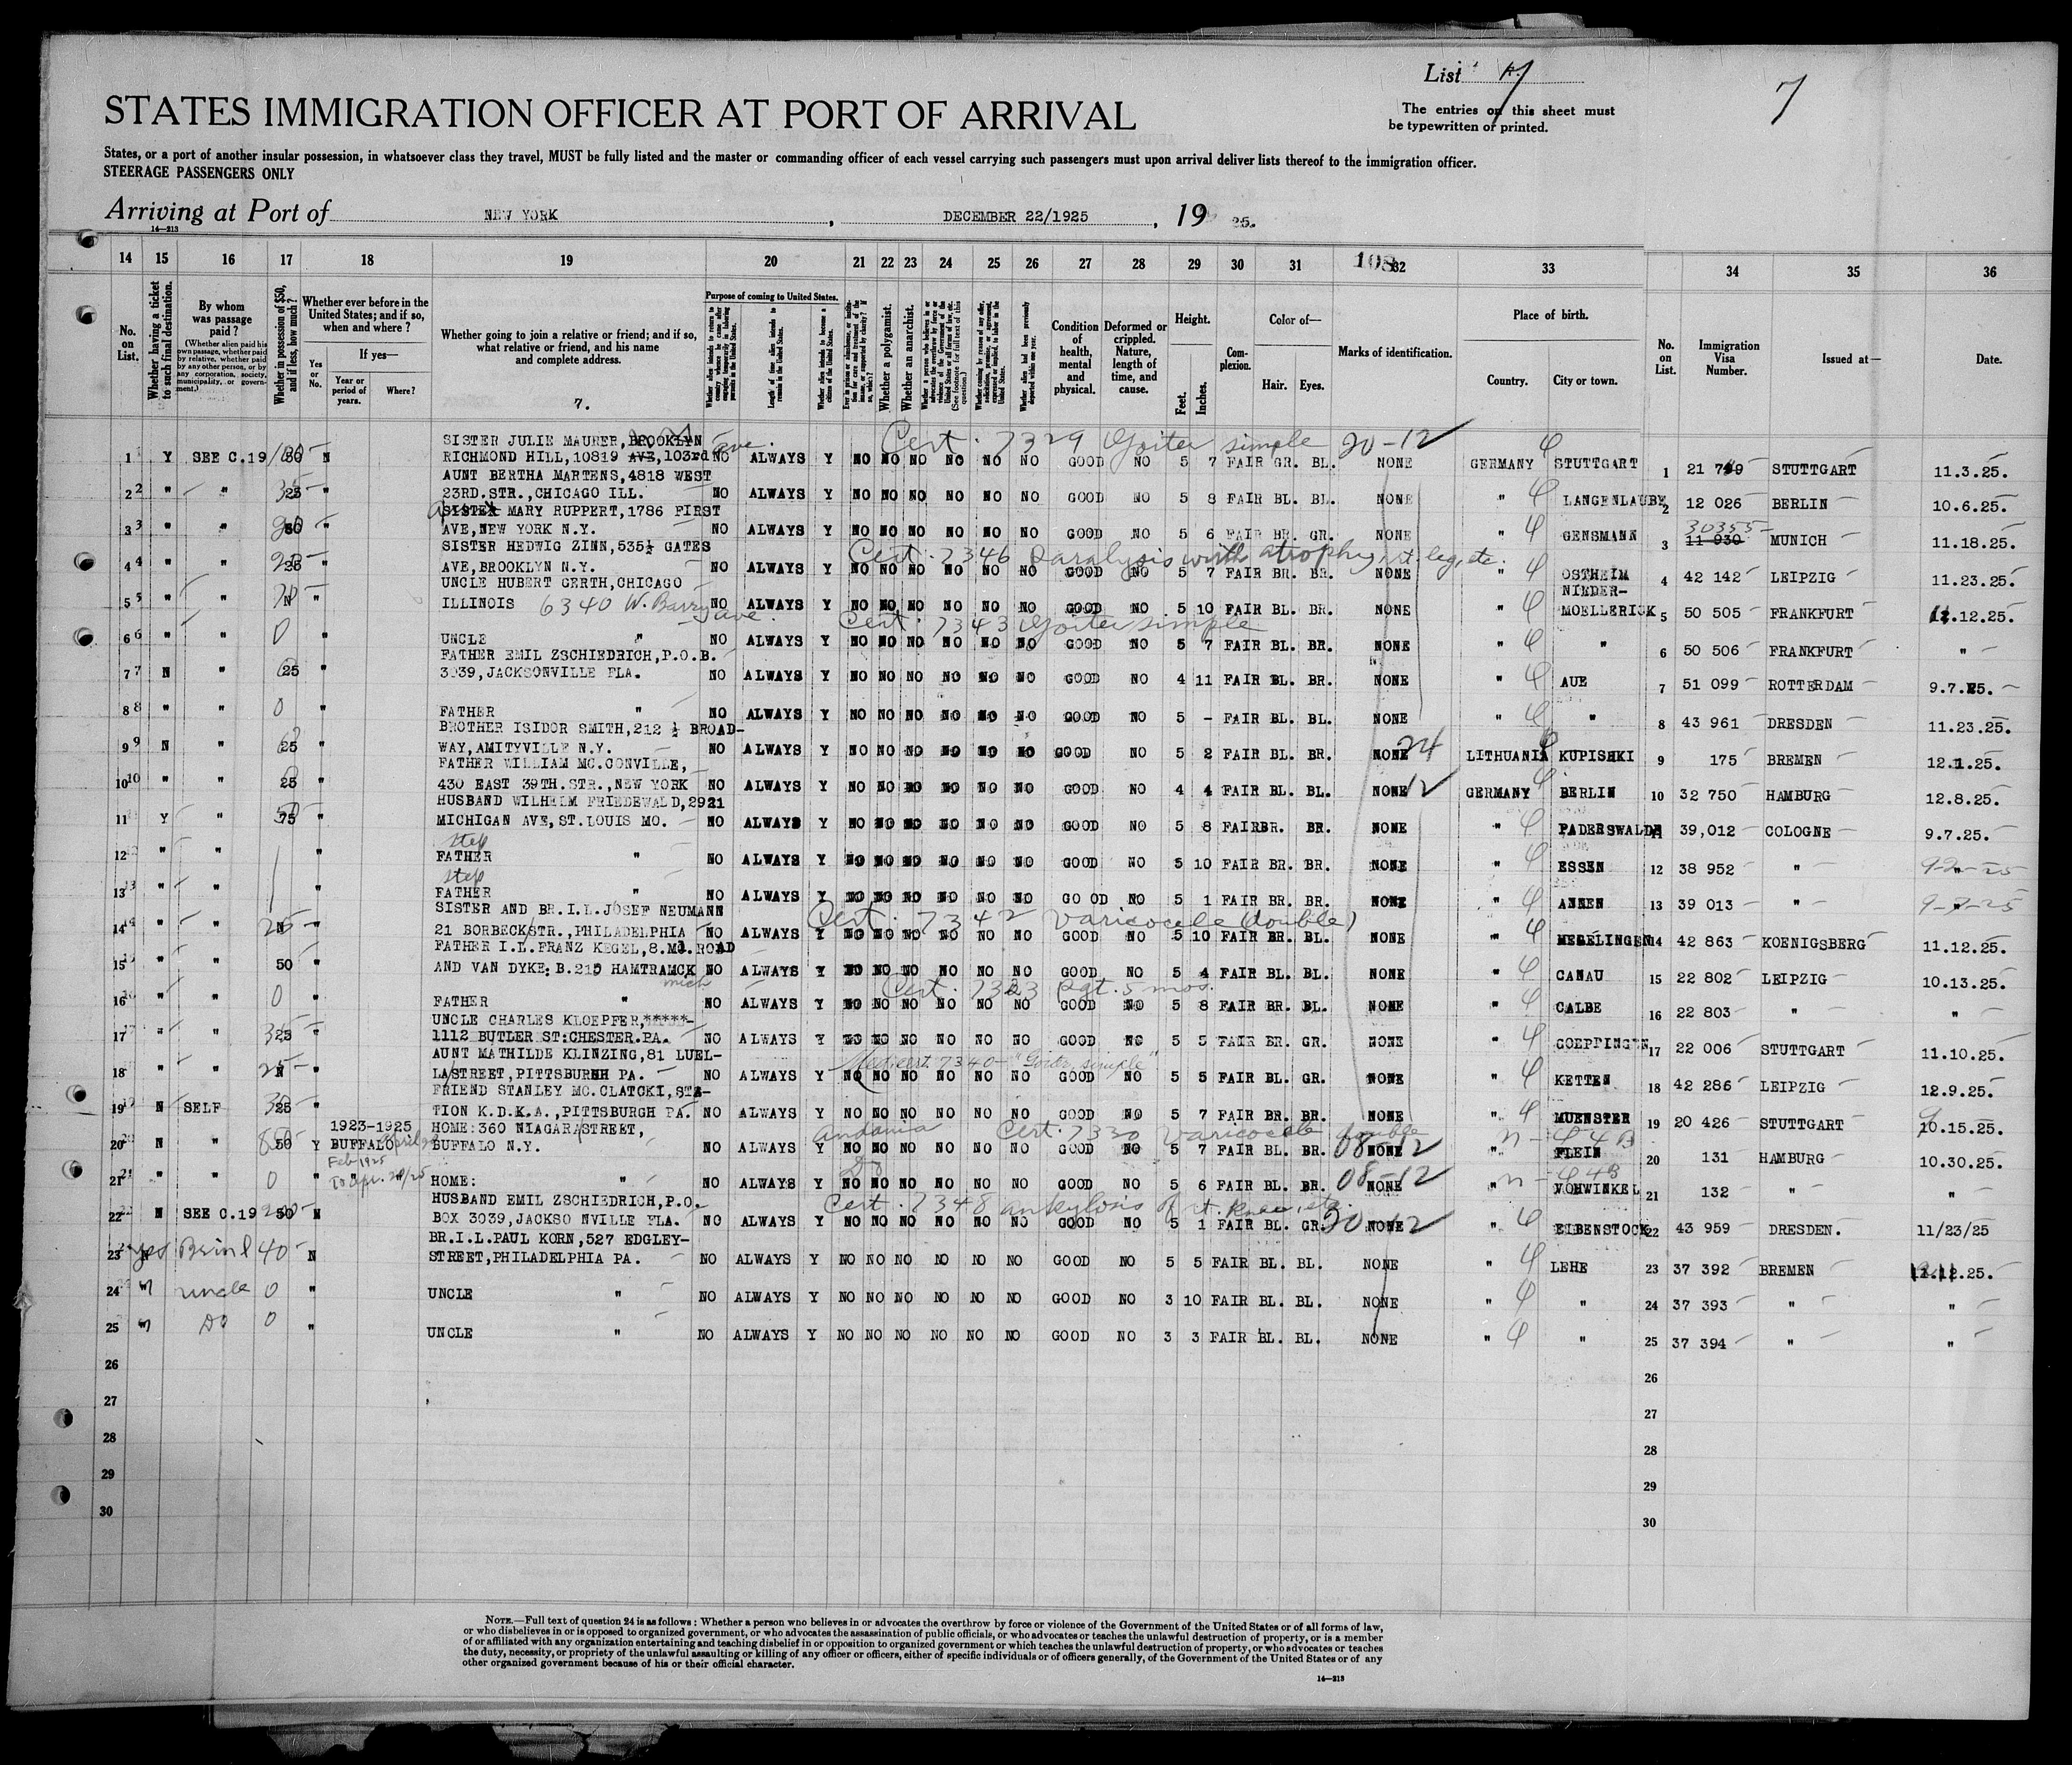 List 7
7
STATES IMMIGRATION OFFICER AT PORT OF ARRIVAL
The entries on this sheet must
be typewritten or printed.
States, or a port of another insular possession, in whatsoever class they travel, MUST be fully listed and the master or commanding officer of each vessel carrying such passengers must upon arrival deliver lists thereof to the immigration officer.
STEERAGE PASSENGERS ONLY
Arriving at Port of NEW YORK , DECEMBER 22/1925 , 19 25.
14—213
14 15 16 17 18 19 20 21 22 23 24 25 26 27 28 29 30 31 108 32 33 34 35 36
No. on List.
Whether having a ticket to such final destination.
By whom was passage paid?
(Whether alien paid his own passage, whether paid by relative, whether paid by any other person, or by any corporation, society, municipality, or government.)
Whether in possession of $50, and if less, how much?
Whether ever before in the United States; and if so, when and where?
Yes or No.
If yes—
Year or period of years.
Where?
Whether going to join a relative or friend; and if so, what relative or friend, and his name and complete address.
7.
Purpose of coming to United States.
Length of time alien intends to remain in the United States.
Whether alien intends to become a citizen of the United States.
Whether a polygamist.
Whether an anarchist.
Condition of health, mental and physical.
Deformed or crippled. Nature, length of time, and cause.
Height.
Feet. Inches.
Complexion.
Color of—
Hair. Eyes.
Marks of identification.
Place of birth.
Country. City or town.
No. on List.
Immigration Visa Number.
Issued at—
Date.
SISTER JULIE MAURER, BROOKLYN ave. Cert. 7329 Goiter simple 20-12
1 Y SEE C.19 N RICHMOND HILL, 10819 AVE, 103rd NO ALWAYS Y NO NO NO NO NO NO GOOD NO 5 7 FAIR GR. BL. NONE GERMANY STUTTGART 1 STUTTGART 11.3.25.
AUNT BERTHA MARTENS, 4818 WEST
2 " " 25 " 23RD.STR., CHICAGO ILL. NO ALWAYS Y NO NO NO NO NO NO GOOD NO 5 8 FAIR BL. BL. NONE " LANGENLAUBE 2 12 026 BERLIN 10.6.25.
SISTER MARY RUPPERT, 1786 FIRST
3 " " " AVE, NEW YORK N.Y. NO ALWAYS Y NO NO NO NO NO NO GOOD NO 5 6 FAIR BR. GR. NONE " GENSMANN 3 30355 11 930 MUNICH 11.18.25.
SISTER HEDWIG ZINN, 535½ GATES Cert. 7346 Paralysis with atrophy, rt. leg, etc.
4 " " 25 " AVE, BROOKLYN N.Y. NO ALWAYS Y NO NO NO NO NO NO GOOD NO 5 7 FAIR BR. BR. NONE " OSTHEIM 4 42 142 LEIPZIG 11.23.25.
UNCLE HUBERT GERTH, CHICAGO NIEDER-
5 " " " ILLINOIS 6340 W. Barry ave. NO ALWAYS Y NO NO NO NO NO NO GOOD NO 5 10 FAIR BL. BR. NONE " MOELLERICK 5 50 505 FRANKFURT 11.12.25.
Cert. 7343 Goiter simple
6 " " 0 " UNCLE " NO ALWAYS Y NO NO NO NO NO NO GOOD NO 5 7 FAIR BL. BR. NONE " " 6 50 506 FRANKFURT "
FATHER EMIL ZSCHIEDRICH, P.O.B.
7 N " 25 " 3039, JACKSONVILLE FLA. NO ALWAYS Y NO NO NO NO NO NO GOOD NO 4 11 FAIR BL. BR. NONE " AUE 7 51 099 ROTTERDAM 9.7.25.
8 " " 0 " FATHER " NO ALWAYS Y NO NO NO NO NO NO GOOD NO 5 - FAIR BL. BL. NONE " " 8 43 961 DRESDEN 11.23.25.
BROTHER ISIDOR SMITH, 212 ½ BROAD-
9 N " 25 " WAY, AMITYVILLE N.Y. NO ALWAYS Y NO NO NO NO NO NO GOOD NO 5 2 FAIR BL. BR. NONE 24 LITHUANIA KUPISHKI 9 175 BREMEN 12.1.25.
FATHER WILLIAM MC.CONVILLE,
10 " " 25 " 430 EAST 39TH.STR., NEW YORK NO ALWAYS Y NO NO NO NO NO NO GOOD NO 4 4 FAIR BL. BL. NONE 12 GERMANY BERLIN 10 32 750 HAMBURG 12.8.25.
HUSBAND WILHELM FRIEDEWALD, 2921
11 Y " 75 " MICHIGAN AVE, ST.LOUIS MO. NO ALWAYS Y NO NO NO NO NO NO GOOD NO 5 8 FAIR BR. BR. NONE " PADERSWALDE 11 39,012 COLOGNE 9.7.25.
step
12 " " " FATHER " NO ALWAYS Y NO NO NO NO NO NO GOOD NO 5 10 FAIR BR. BR. NONE " ESSEN 12 38 952 "
step
13 " " " FATHER " NO ALWAYS Y NO NO NO NO NO NO GO OD NO 5 1 FAIR BR. BR. NONE " ANNEN 13 39 013 "
SISTER AND BR.I.L.JOSEF NEUMANN Cert. 7342 Varicocele (double)
14 " " " 21 BORBECKSTR., PHILADELPHIA NO ALWAYS Y NO NO NO NO NO NO GOOD NO 5 10 FAIR BR. BL. NONE " MEGELINGEN 14 42 863 KOENIGSBERG 11.12.25.
FATHER I.L.FRANZ KEGEL, 8.Ml.ROAD
15 " " 50 " AND VAN DYKE: B.215 HAMTRAMCK mich NO ALWAYS Y NO NO NO NO NO NO GOOD NO 5 4 FAIR BL. BL. NONE " CANAU 15 22 802 LEIPZIG 10.13.25.
Cert. 7323 Pgt. 5 mos.
16 " " 0 " FATHER " NO ALWAYS Y NO NO NO NO NO NO GOOD NO 5 8 FAIR BR. BL. NONE " CALBE 16 22 803 " "
UNCLE CHARLES KLOEPFER, *****-
17 " " 25 " 1112 BUTLER ST: CHESTER.PA. NO ALWAYS Y NO NO NO NO NO NO GOOD NO 5 5 FAIR BR. GR. NONE " GOEPPINGEN 17 22 006 STUTTGART 11.10.25.
AUNT MATHILDE KLINZING, 81 LUEL- Med. cert. 7340 - "Goiter, simple"
18 " " " LA STREET, PITTSBURGH PA. NO ALWAYS Y NO NO NO NO NO NO GOOD NO 5 5 FAIR BL. GR. NONE " KETTEN 18 42 286 LEIPZIG 12.9.25.
FRIEND STANLEY MC.CLATCKI, STA-
19 N SELF 25 " TION K.D.K.A., PITTSBURGH PA. NO ALWAYS Y NO NO NO NO NO NO GOOD NO 5 7 FAIR BR. BR. NONE " MUENSTER 19 20 426 STUTTGART 10.15.25.
1923-1925 HOME: 360 NIAGARA STREET, Andania Cert. 7330 Varicocele double
20 N " 50 Y BUFFALO BUFFALO N.Y. NO ALWAYS Y NO NO NO NO NO NO GOOD NO 5 7 FAIR BL. BR. NONE 08-12 " FLEIN 20 131 HAMBURG 10.30.25.
Feb 1925 to Apr. 28/25 Do
21 " " 0 " HOME: " NO ALWAYS Y NO NO NO NO NO NO GOOD NO 5 6 FAIR BL. BR. NONE 08-12 " VOHWINKEL 21 132 " "
HUSBAND EMIL ZSCHIEDRICH, P.O. Cert. 7348 ankylosis of rt. knee, etc.
22 N SEE C.19 50 N BOX 3039, JACKSO NVILLE FLA. NO ALWAYS Y NO NO NO NO NO NO GOOD NO 5 1 FAIR BL. GR. NONE 20-12 " EIBENSTOCK 22 43 959 DRESDEN. 11/23/25
BR.I.L.PAUL KORN, 527 EDGLEY-
23 yes Br in l 40 N STREET, PHILADELPHIA PA. NO ALWAYS Y NO NO NO NO NO NO GOOD NO 5 5 FAIR BL. BL. NONE " LEHE 23 37 392 BREMEN 12.25.
24 " uncle 0 " UNCLE " NO ALWAYS Y NO NO NO NO NO NO GOOD NO 3 10 FAIR BL. BL. NONE " " 24 37 393 " "
25 " Do 0 " UNCLE " NO ALWAYS Y NO NO NO NO NO NO GOOD NO 3 3 FAIR BL. BL. NONE " " 25 37 394 " "
26 26
27 27
28 28
29 29
30 30
NOTE.—Full text of question 24 is as follows: Whether a person who believes in or advocates the overthrow by force or violence of the Government of the United States or of all forms of law,
or who disbelieves in or is opposed to organized government, or who advocates the assassination of public officials, or who advocates or teaches the unlawful destruction of property, or is a member
of or affiliated with any organization entertaining and teaching disbelief in or opposition to organized government or which teaches the unlawful destruction of property, or who advocates or teaches
the duty, necessity, or propriety of the unlawful assaulting or killing of any officer or officers, either of specific individuals or of officers generally, of the Government of the United States or of any
other organized government because of his or their official character.
14—213